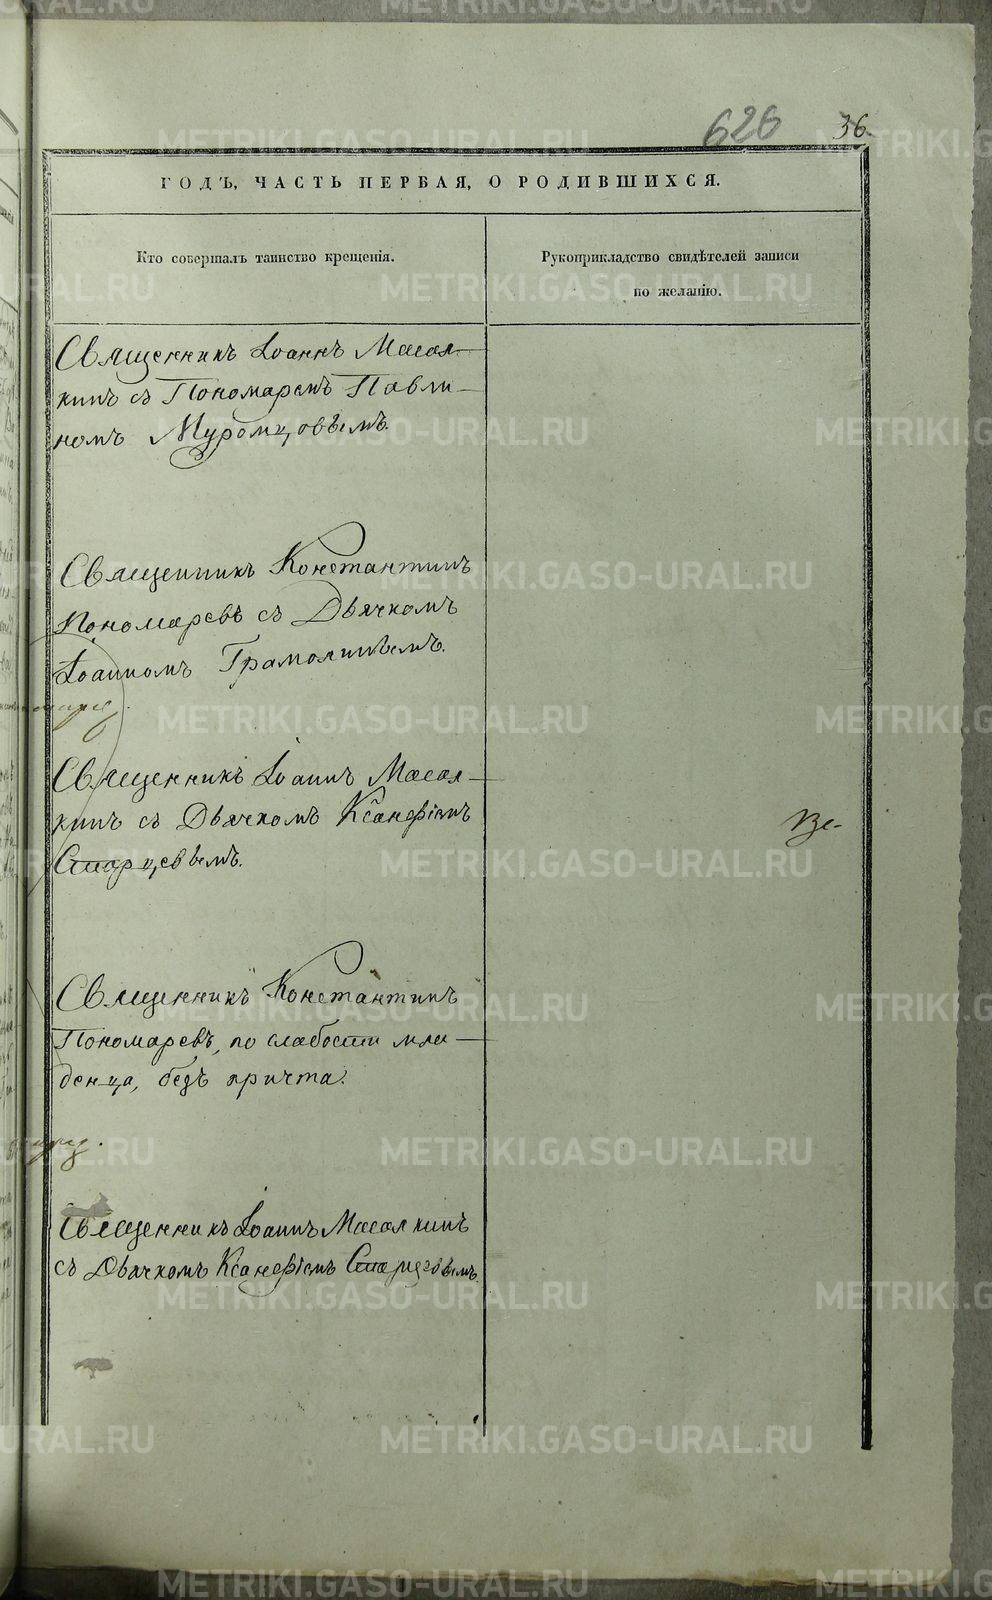 626 36.
ГОДЪ, ЧАСТЬ ПЕРВАЯ, О РОДИВШИХСЯ.
Кто совершалъ таинство крещенія.
Рукоприкладство свидѣтелей записи
по желанію.
Священникъ Іоаннъ Масал-
кинъ съ Пономаремъ Павли-
номъ Муромцовымъ.
Священникъ Константинъ
Пономаревъ съ Дьячкомъ
Іоанномъ Грамолинымъ.
Священникъ Іоаннъ Масал-
кинъ съ Дьячкомъ Ксанфіемъ
Старцевымъ.
Священникъ Константинъ
Пономаревъ, по слабости мла-
денца, безъ причта.
Священникъ Іоаннъ Масалкинъ
съ Дьячкомъ Ксанфіемъ Старцовымъ.
METRIKI.GASO-URAL.RU